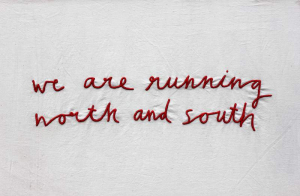 we are running
north and south